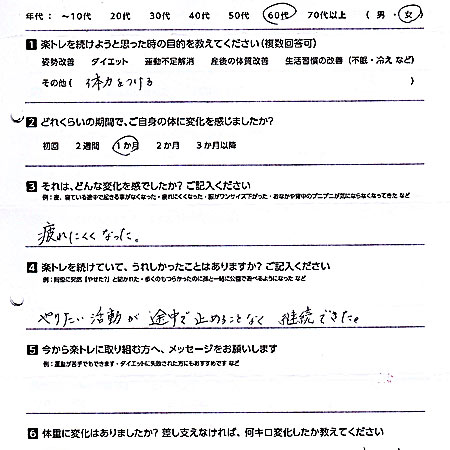 年代： ～10代 20代 30代 40代 50代 60代 70代以上 （ 男 ・ 女 ）
1 楽トレを続けようと思った時の目的を教えてください（複数回答可）
姿勢改善 ダイエット 運動不足解消 産後の体質改善 生活習慣の改善（不眠・冷え など）
その他（ 体力をつける ）
2 どれくらいの期間で、ご自身の体に変化を感じましたか？
初回 2週間 1か月 2か月 3か月以降
3 それは、どんな変化を感でしたか？ ご記入ください
例：夜、寝ている途中で起きる事がなくなった・疲れにくくなった・服がワンサイズ下がった・おなかや背中のプニプニが気にならなくなってきた など
疲れにくくなった。
4 楽トレを続けていて、うれしかったことはありますか？ ご記入ください
やりたい活動が途中で止めることなく継続できた。
5 今から楽トレに取り組む方へ、メッセージをお願いします
例：運動が苦手でもできます・ダイエットに失敗された方にもおすすめです など
6 体重に変化はありましたか？ 差し支えなければ、何キロ変化したか教えてください